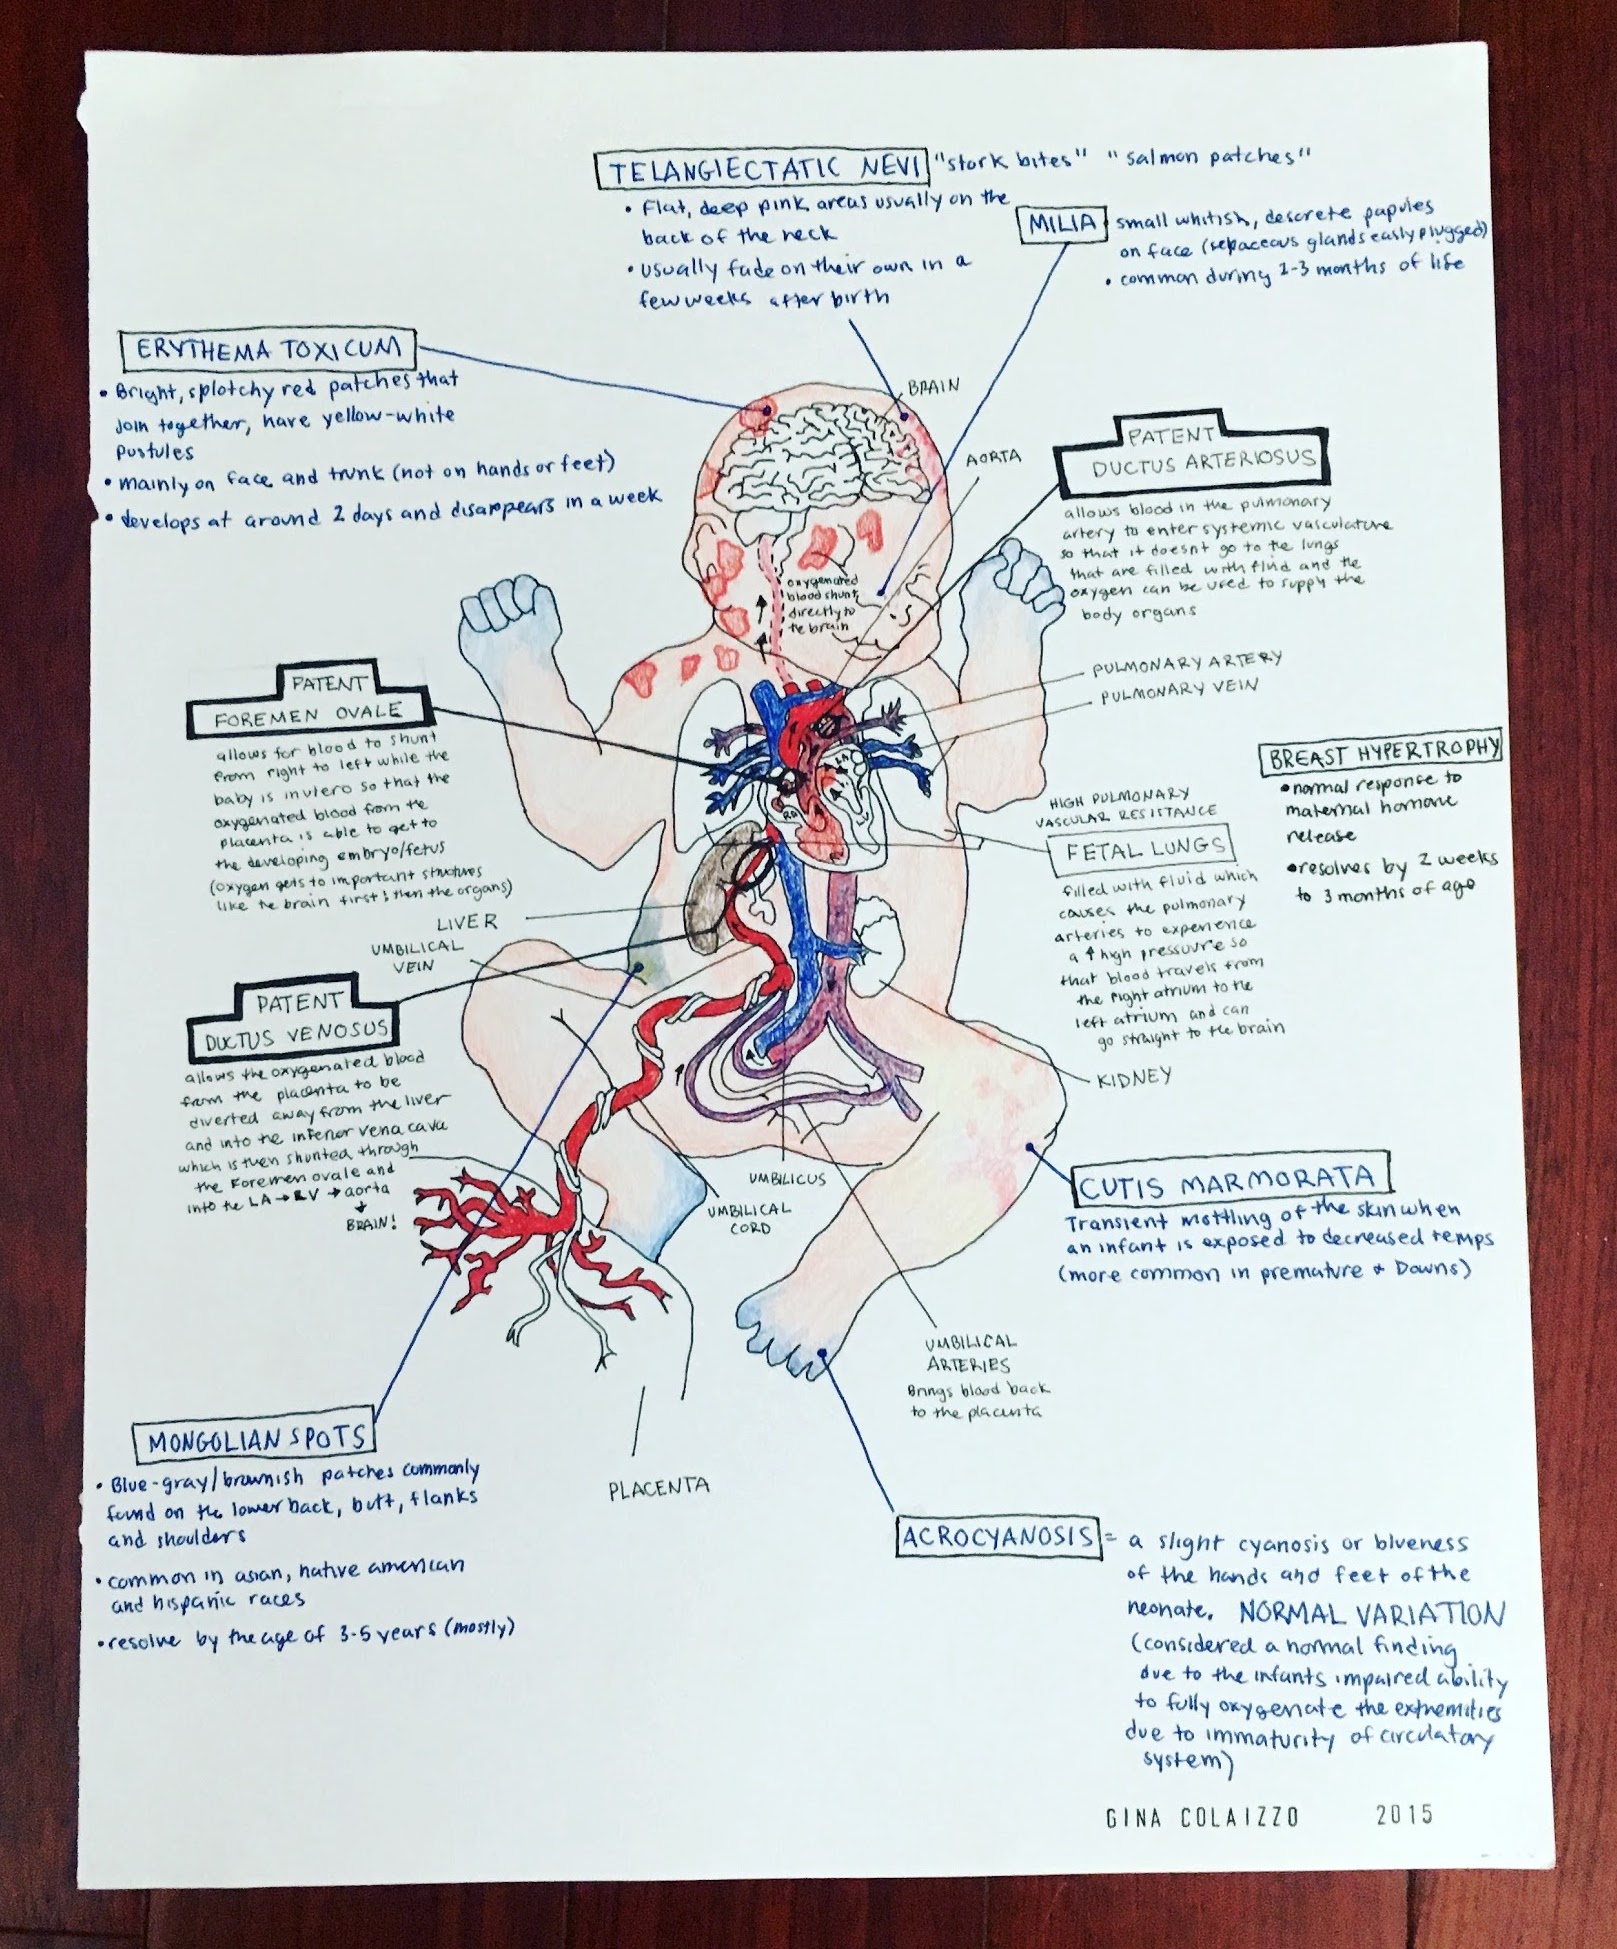 TELANGIECTATIC NEVI "stork bites" "salmon patches"
• Flat, deep pink areas usually on the
back of the neck
• usually fade on their own in a
few weeks after birth
MILIA small whitish, descrete papules
on face (sebaceous glands easily plugged)
• common during 1-3 months of life
ERYTHEMA TOXICUM
• Bright, splotchy red patches that
join together, have yellow-white
pustules
• mainly on face and trunk (not on hands or feet)
• develops at around 2 days and disappears in a week
BRAIN
AORTA
PATENT
DUCTUS ARTERIOSUS
allows blood in the pulmonary
artery to enter systemic vasculature
so that it doesnt go to the lungs
that are filled with fluid and the
oxygen can be used to supply the
body organs
oxygenated
blood shunt
directly to
the brain
PULMONARY ARTERY
PULMONARY VEIN
PATENT
FOREMEN OVALE
allows for blood to shunt
from right to left while the
baby is in utero so that the
oxygenated blood from the
placenta is able to get to
the developing embryo/fetus
(oxygen gets to important structures
like the brain first; then the organs)
RA
LA
LV
BREAST HYPERTROPHY
• normal response to
maternal hormone
release
• resolves by 2 weeks
to 3 months of age
HIGH PULMONARY
VASCULAR RESISTANCE
FETAL LUNGS
filled with fluid which
causes the pulmonary
arteries to experience
a ↑ high pressure so
that blood travels from
the right atrium to the
left atrium and can
go straight to the brain
LIVER
UMBILICAL
VEIN
PATENT
DUCTUS VENOSUS
allows the oxygenated blood
from the placenta to be
diverted away from the liver
and into the inferior vena cava
which is then shunted through
the Foremen ovale and
into the LA → LV → aorta
↓
BRAIN!
KIDNEY
UMBILICUS
UMBILICAL
CORD
CUTIS MARMORATA
Transient mottling of the skin when
an infant is exposed to decreased temps
(more common in premature + Downs)
UMBILICAL
ARTERIES
Brings blood back
to the placenta
MONGOLIAN SPOTS
• Blue-gray/brownish patches commonly
found on the lower back, butt, flanks
and shoulders
• common in asian, native american
and hispanic races
• resolve by the age of 3-5 years (mostly)
PLACENTA
ACROCYANOSIS = a slight cyanosis or blueness
of the hands and feet of the
neonate. NORMAL VARIATION
(considered a normal finding
due to the infants impaired ability
to fully oxygenate the extremities
due to immaturity of circulatory
system)
GINA COLAIZZO 2015